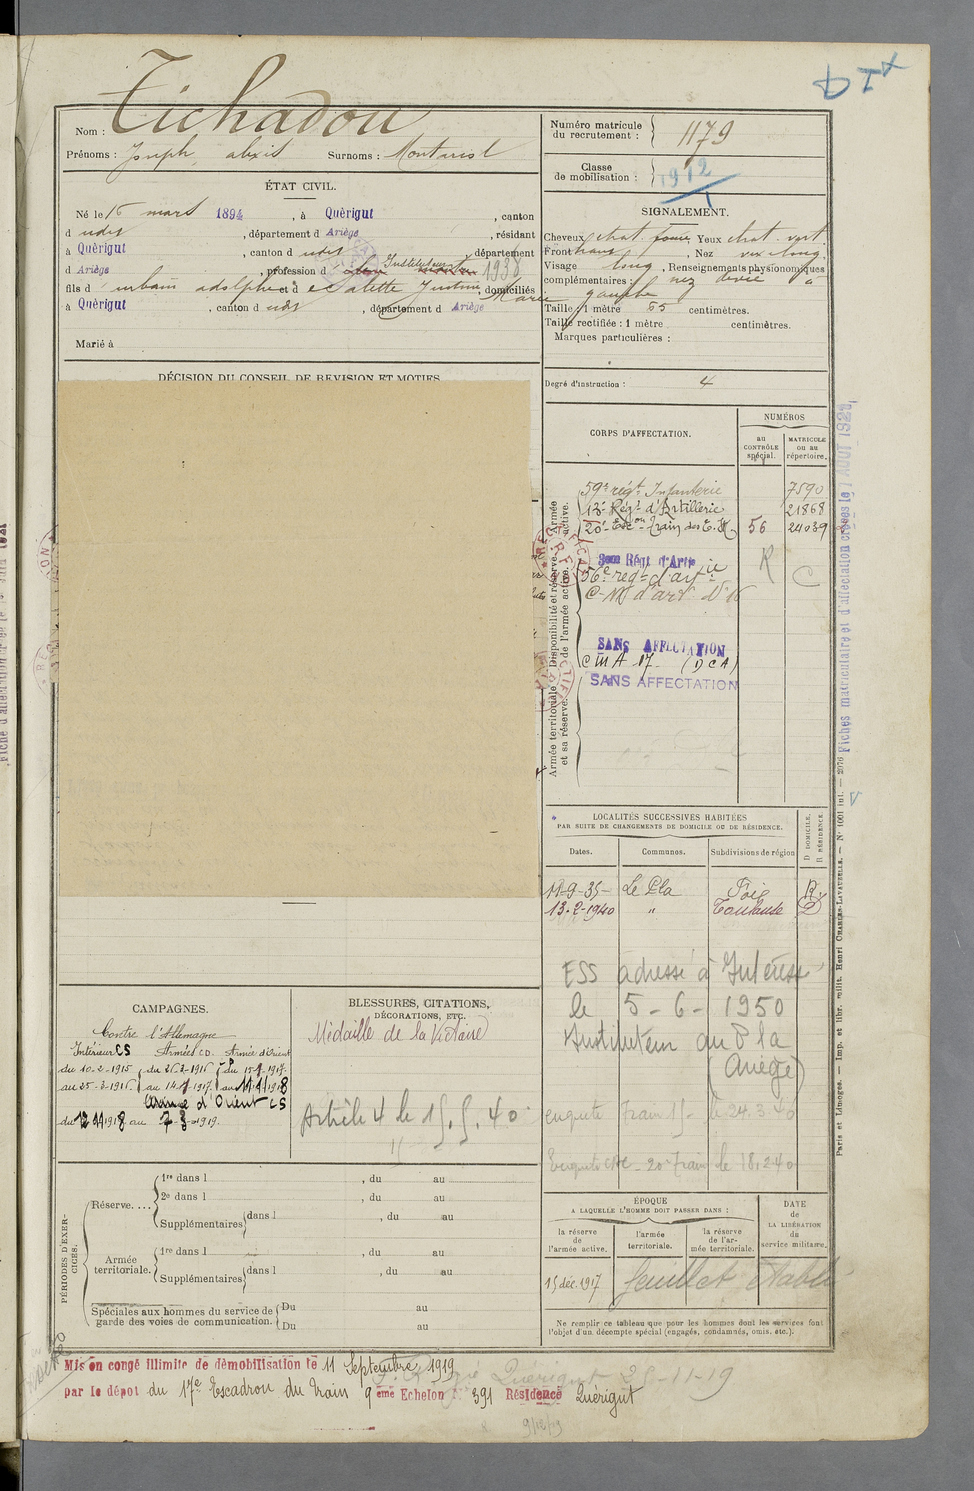 Tichadou
Nom :
Prénoms : Joseph, alexis Surnoms :
ÉTAT CIVIL.
Né le 15 mars 1894, à Quérigut, canton
d udit, département d Ariège, résidant
à Quérigut, canton d udit, département
d Ariège, profession d Instituteur 1938
fils d urbain adolphe et d Justine, domiciliés
Marie
à Quérigut, canton d udit, département d Ariège
Marié à
DÉCISION DU CONSEIL DE REVISION ET MOTIFS
Numéro matricule
du recrutement : 1179
Classe
de mobilisation : 1912
SIGNALEMENT.
Cheveux chat. foncé, Yeux chat. vert.
Front haut, Nez
Visage long, Renseignements physionomiques
complémentaires : nez dévié à
gauche
Taille : 1 mètre 65 centimètres.
Taille rectifiée : 1 mètre centimètres.
Marques particulières :
Degré d'instruction : 4
CORPS D'AFFECTATION.
NUMÉROS
au
CONTRÔLE
spécial.
MATRICULE
ou au
répertoire.
Armée
active.
Disponibilité et réserve
de l'armée active.
Armée territoriale
et sa réserve.
59e régt Infanterie 7590
13e Régt d'Artillerie 21868
20e Escon Train des E. M. 56 24039
56e régt d'artie R C
C M d'art. N° 16
SANS AFFECTATION
C M A 17 (D C A)
SANS AFFECTATION
Fiches matriculaire et d'affectation créées le 7 AOUT 1928
LOCALITÉS SUCCESSIVES HABITÉES
PAR SUITE DE CHANGEMENTS DE DOMICILE OU DE RÉSIDENCE.
Dates.
Communes.
Subdivisions de région
D DOMICILE.
R RÉSIDENCE.
11-9-35- Le Pla Foix R
13-2-1940 " Toulouse D
ESS adressé à Intéressé
le 5-6-1950
Instituteur au Pla
(Ariège)
enquête Train 15- le 24.3.40
Enquête 20e Train le 18.2.40
CAMPAGNES.
Contre l'Allemagne
Intérieur CS Armées CD. Armée d'Orient
du 10-2-1915 du 26-2-1916
au 25-2-1916
Armée d'Orient CS
du 12 11 1918 au 7-3-1919.
BLESSURES, CITATIONS,
DÉCORATIONS, ETC.
Médaille de la Victoire
Article 4 le 15.5.40
PÉRIODES D'EXERCICES.
Réserve....
1re dans l , du au
2e dans l , du au
Supplémentaires dans l , du au
Armée
territoriale.
1re dans l , du au
Supplémentaires dans l , du au
Spéciales aux hommes du service de
garde des voies de communication.
Du au
Du au
ÉPOQUE
A LAQUELLE L'HOMME DOIT PASSER DANS :
la réserve
de
l'armée active.
l'armée
territoriale.
la réserve
de l'armée territoriale.
DATE
de
LA LIBÉRATION
du
service militaire.
15 déc. 1917 feuillet établi
Ne remplir ce tableau que pour les hommes dont les services font
l'objet d'un décompte spécial (engagés, condamnés, omis, etc.).
Paris et Limoges. — Imp. et libr. milit. Henri CHARLES-LAVAUZELLE. — N° 1001 int. — 2076
Mis en congé illimité de démobilisation le 11 Septembre 1919
par le dépôt du 17e Escadron du Train 9 ème Echelon N° 391 Résidence Quérigut
Quérigut 25-11-19
9/12/19